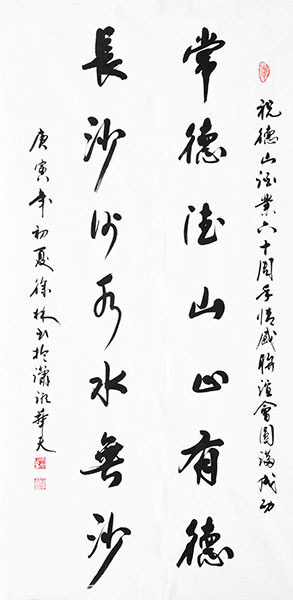 祝德山酒業六十周年情感聯誼會圓滿成功
常德德山山有德
長沙沙水水無沙
庚寅年初夏徐林书於瀟湘華天